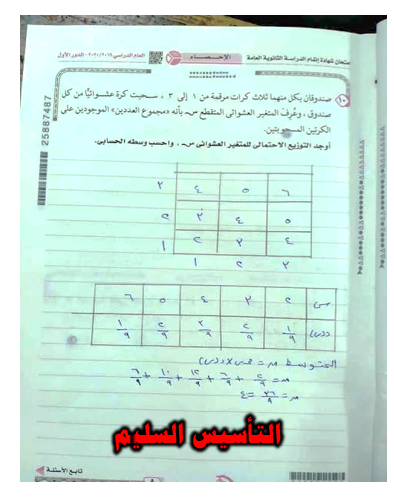 امتحان شهادة إتمام الدراسة الثانوية العامة
الإحصاء
العام الدراسي ٢٠١٩/٢٠٢٠ - الدور الأول
(١٠) صندوقان بكل منهما ثلاث كرات مرقمة من ١ إلى ٣ ، سحبت كرة عشوائيًا من كل
صندوق ، وعُرف المتغير العشوائى المتقطع س بأنه «مجموع العددين» الموجودين على
الكرتين المسحوبتين.
أوجد التوزيع الاحتمالى للمتغير العشوائى س ، واحسب وسطه الحسابى.
25887487
٣ ٤ ٥ ٦
٢ ٣ ٤ ٥
١ ٢ ٣ ٤
١ ٢ ٣
س ٢ ٣ ٤ ٥ ٦
د(س) ١/٩ ٢/٩ ٣/٩ ٢/٩ ١/٩
المتوسط م = س × د(س)
م = ٢/٩ + ٦/٩ + ١٢/٩ + ١٠/٩ + ٦/٩
م = ٣٦/٩ = ٤
التأسيس السليم
تابع الأسئلة